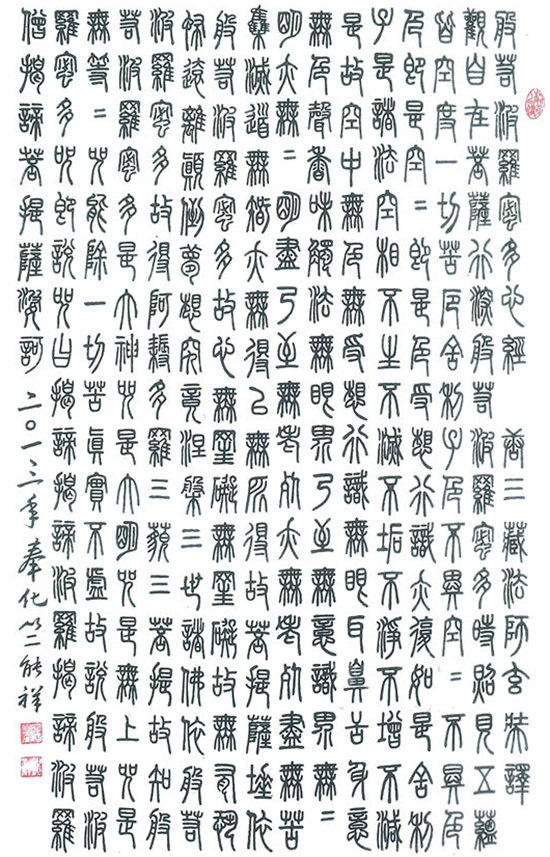 般若波羅蜜多心經 唐三藏法師玄奘譯
觀自在菩薩行深般若波羅蜜多時照見五蘊
皆空度一切苦厄舍利子色不異空〻不異色
色即是空〻即是色受想行識亦復如是舍利
子是諸法空相不生不滅不垢不淨不增不減
是故空中無色無受想行識無眼耳鼻舌身意
無色聲香味觸法無眼界乃至無意識界無〻
明亦無〻明盡乃至無老死亦無老死盡無苦
集滅道無智亦無得以無所得故菩提薩埵依
般若波羅蜜多故心無罣礙無罣礙故無有恐
怖遠離顛倒夢想究竟涅槃三世諸佛依般若
波羅蜜多故得阿耨多羅三藐三菩提故知般
若波羅蜜多是大神咒是大明咒是無上咒是
無等〻咒能除一切苦真實不虛故說般若波
羅蜜多咒即說咒曰揭諦揭諦波羅揭諦波羅
僧揭諦菩提薩婆訶 二〇一三年奉化竺能祥